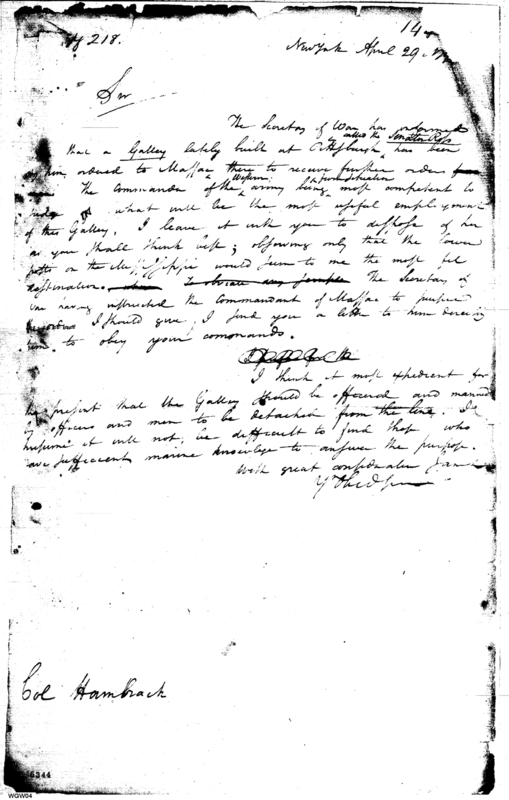 218.
14
New York April 29
Sir
The Secretary of War has informed
called the Senator Ross
that a Galley lately built at Pittsburgh has been
by him ordered to Massac there to receive further orders
Western
The Commander of the army being most competent to
judge what will be the most useful employment
of this Galley, I leave it with you to dispose of her
as you shall think best; observing only that the lower
posts on the Mississippi would seem to me the most fit
destination. The Secretary of
War having instructed the Commandant of Massac to pursue
the orders I should give, I send you a letter to him directing
him to obey your commands.
I think it most expedient for
the present that the Galley should be officered and manned
by officers and men to be detached from the line. I
presume it will not be difficult to find those who
have sufficient marine knowledge to answer the purpose.
With great consideration I am
Yr Obed Ser
Col Hambrack
6344
WGW04